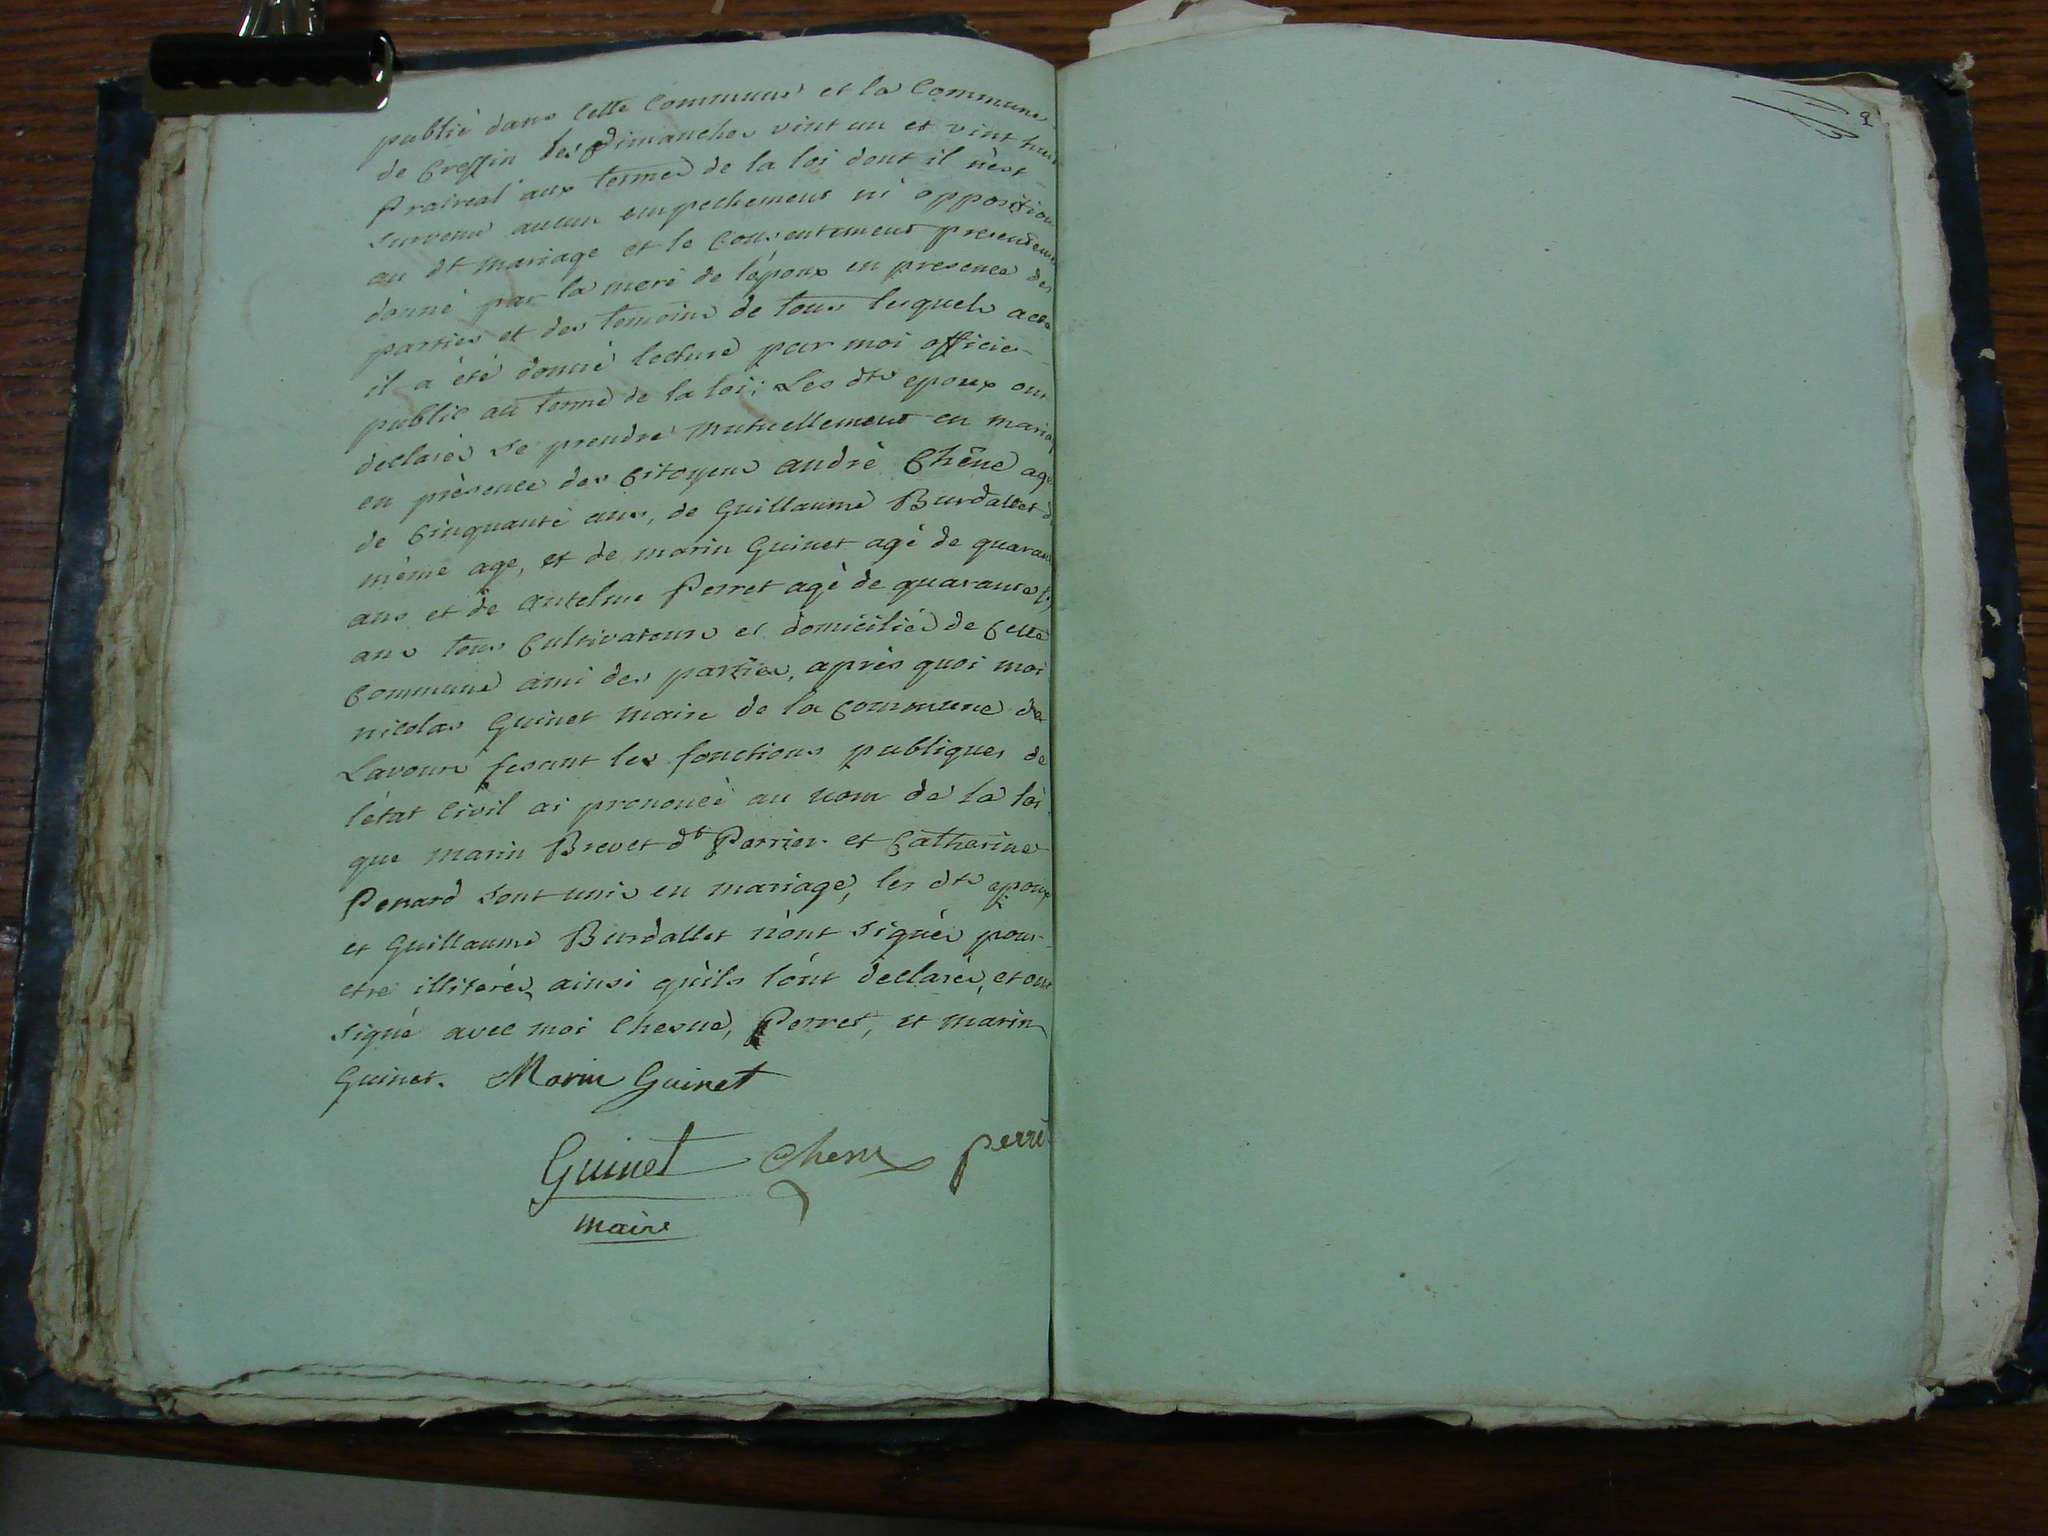 publié dans Cette Commune et la Commune
de Cressin les Dimanches vint un et vint huit
Prairéal aux termes de la loi dont il n'est
survenu aucun empechement ni opposition
au dt mariage et le Consentement presentement
donné par la mere de l'époux en presence des
parties et des temoins de tous lesquels acte
il a été donné lecture par moi officier
public au terme de la loi; Les dts epoux ont
declarés se prendre mutuellement en mariag
en présence des Citoyens andré Chêne agé
de Cinquante ans, de Guillaume Burdallet de
même age, et de marin Guinet agé de quarante
ans et de antelme Perret agé de quarante
ans tous Cultivateurs et domiciliés de Cette
Commune ami des parties, après quoi moi
nicolas Guinet maire de la Commune de
Lavours fesant les fonctions publiques de
l'état Civil ai prononcé au nom de la loi
que marin Brevet dt Perrier et Catherine
Penard sont unis en mariage, les dts epoux
et Guillaume Burdallet n'ont signés pour
etre illiterés, ainsi qu'ils l'ont declarés, et ont
signé avec moi Chesne, Perret, et marin
Guinet. Marin Guinet
Guinet Chesne perret
maire